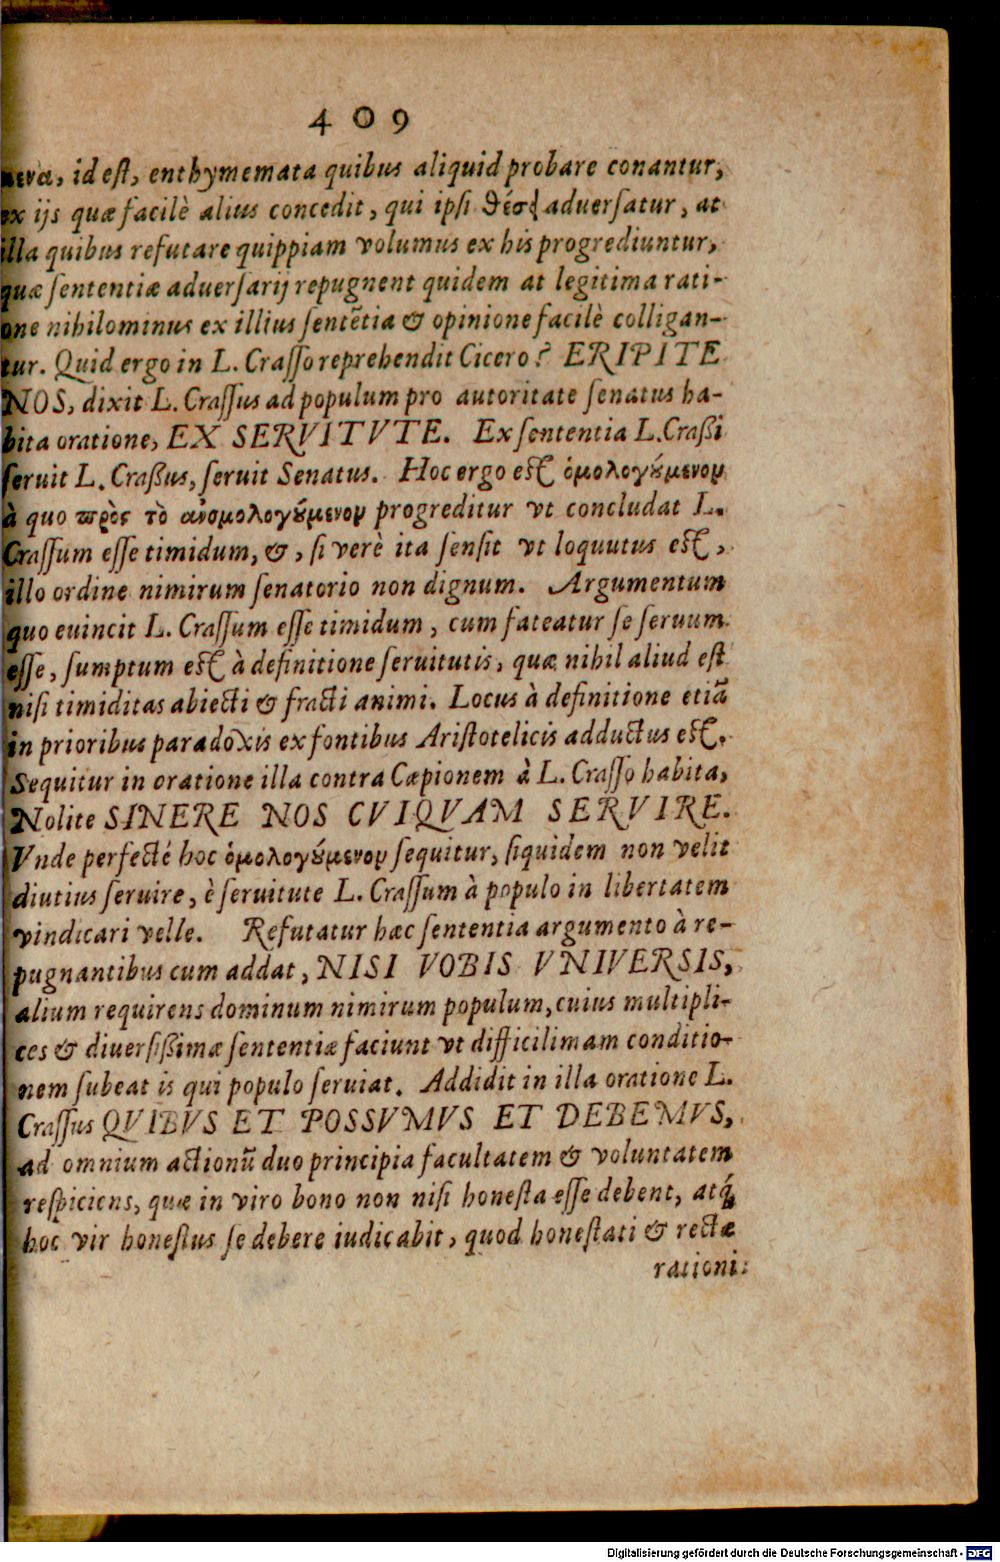 409
μενα, id est, enthymemata quibus aliquid probare conantur,
ex ijs quæ facilè alius concedit, qui ipsi θέσει aduersatur, at
illa quibus refutare quippiam volumus ex his progrediuntur,
quæ sententiæ aduersarij repugnent quidem at legitima rati-
one nihilominus ex illius sentētia & opinione facilè colligan-
tur. Quid ergo in L. Crasso reprehendit Cicero? ERIPITE
NOS, dixit L. Crassus ad populum pro autoritate senatus ha-
bita oratione, EX SERVITVTE. Ex sententia L. Craßi
seruit L. Craßus, seruit Senatus. Hoc ergo est ὁμολογούμενον
à quo πρὸς τὸ ἀνομολογούμενον progreditur vt concludat L.
Crassum esse timidum, &, si verè ita sensit vt loquutus est,
illo ordine nimirum senatorio non dignum. Argumentum
quo euincit L. Crassum esse timidum, cum fateatur se seruum
esse, sumptum est à definitione seruitutis, quæ nihil aliud est
nisi timiditas abiecti & fracti animi. Locus à definitione etiā
in prioribus paradoxis ex fontibus Aristotelicis adductus est.
Sequitur in oratione illa contra Cæpionem à L. Crasso habita,
Nolite SINERE NOS CVIQVAM SERVIRE.
Vnde perfectè hoc ὁμολογούμενον sequitur, siquidem non velit
diutius seruire, è seruitute L. Crassum à populo in libertatem
vindicari velle. Refutatur hæc sententia argumento à re-
pugnantibus cum addat, NISI VOBIS VNIVERSIS,
alium requirens dominum nimirum populum, cuius multipli-
ces & diuersißimæ sententiæ faciunt vt difficilimam conditio-
nem subeat is qui populo seruiat. Addidit in illa oratione L.
Crassus QVIBVS ET POSSVMVS ET DEBEMVS,
ad omnium actionū duo principia facultatem & voluntatem
respiciens, quæ in viro bono non nisi honesta esse debent, atq́;
hoc vir honestus se debere iudicabit, quod honestati & rectæ
rationi
Digitalisierung gefördert durch die Deutsche Forschungsgemeinschaft - DFG